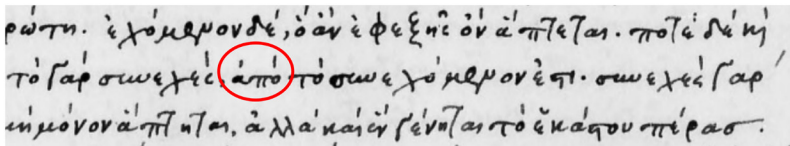 ρώτη. ἐχόμενον δέ, ὃ ἂν ἐφεξῆς ὂν ἅπτεται. ποτὲ δὲ κὴ
τὸ γὰρ συνεχές, ἀπὸ τὸ συνεχόμενόν ἐστι. συνεχὲς γὰρ
μὴ μόνον ἅπτηται, ἀλλὰ καὶ ἓν γένηται τὸ ἑκάτου πέρασ.